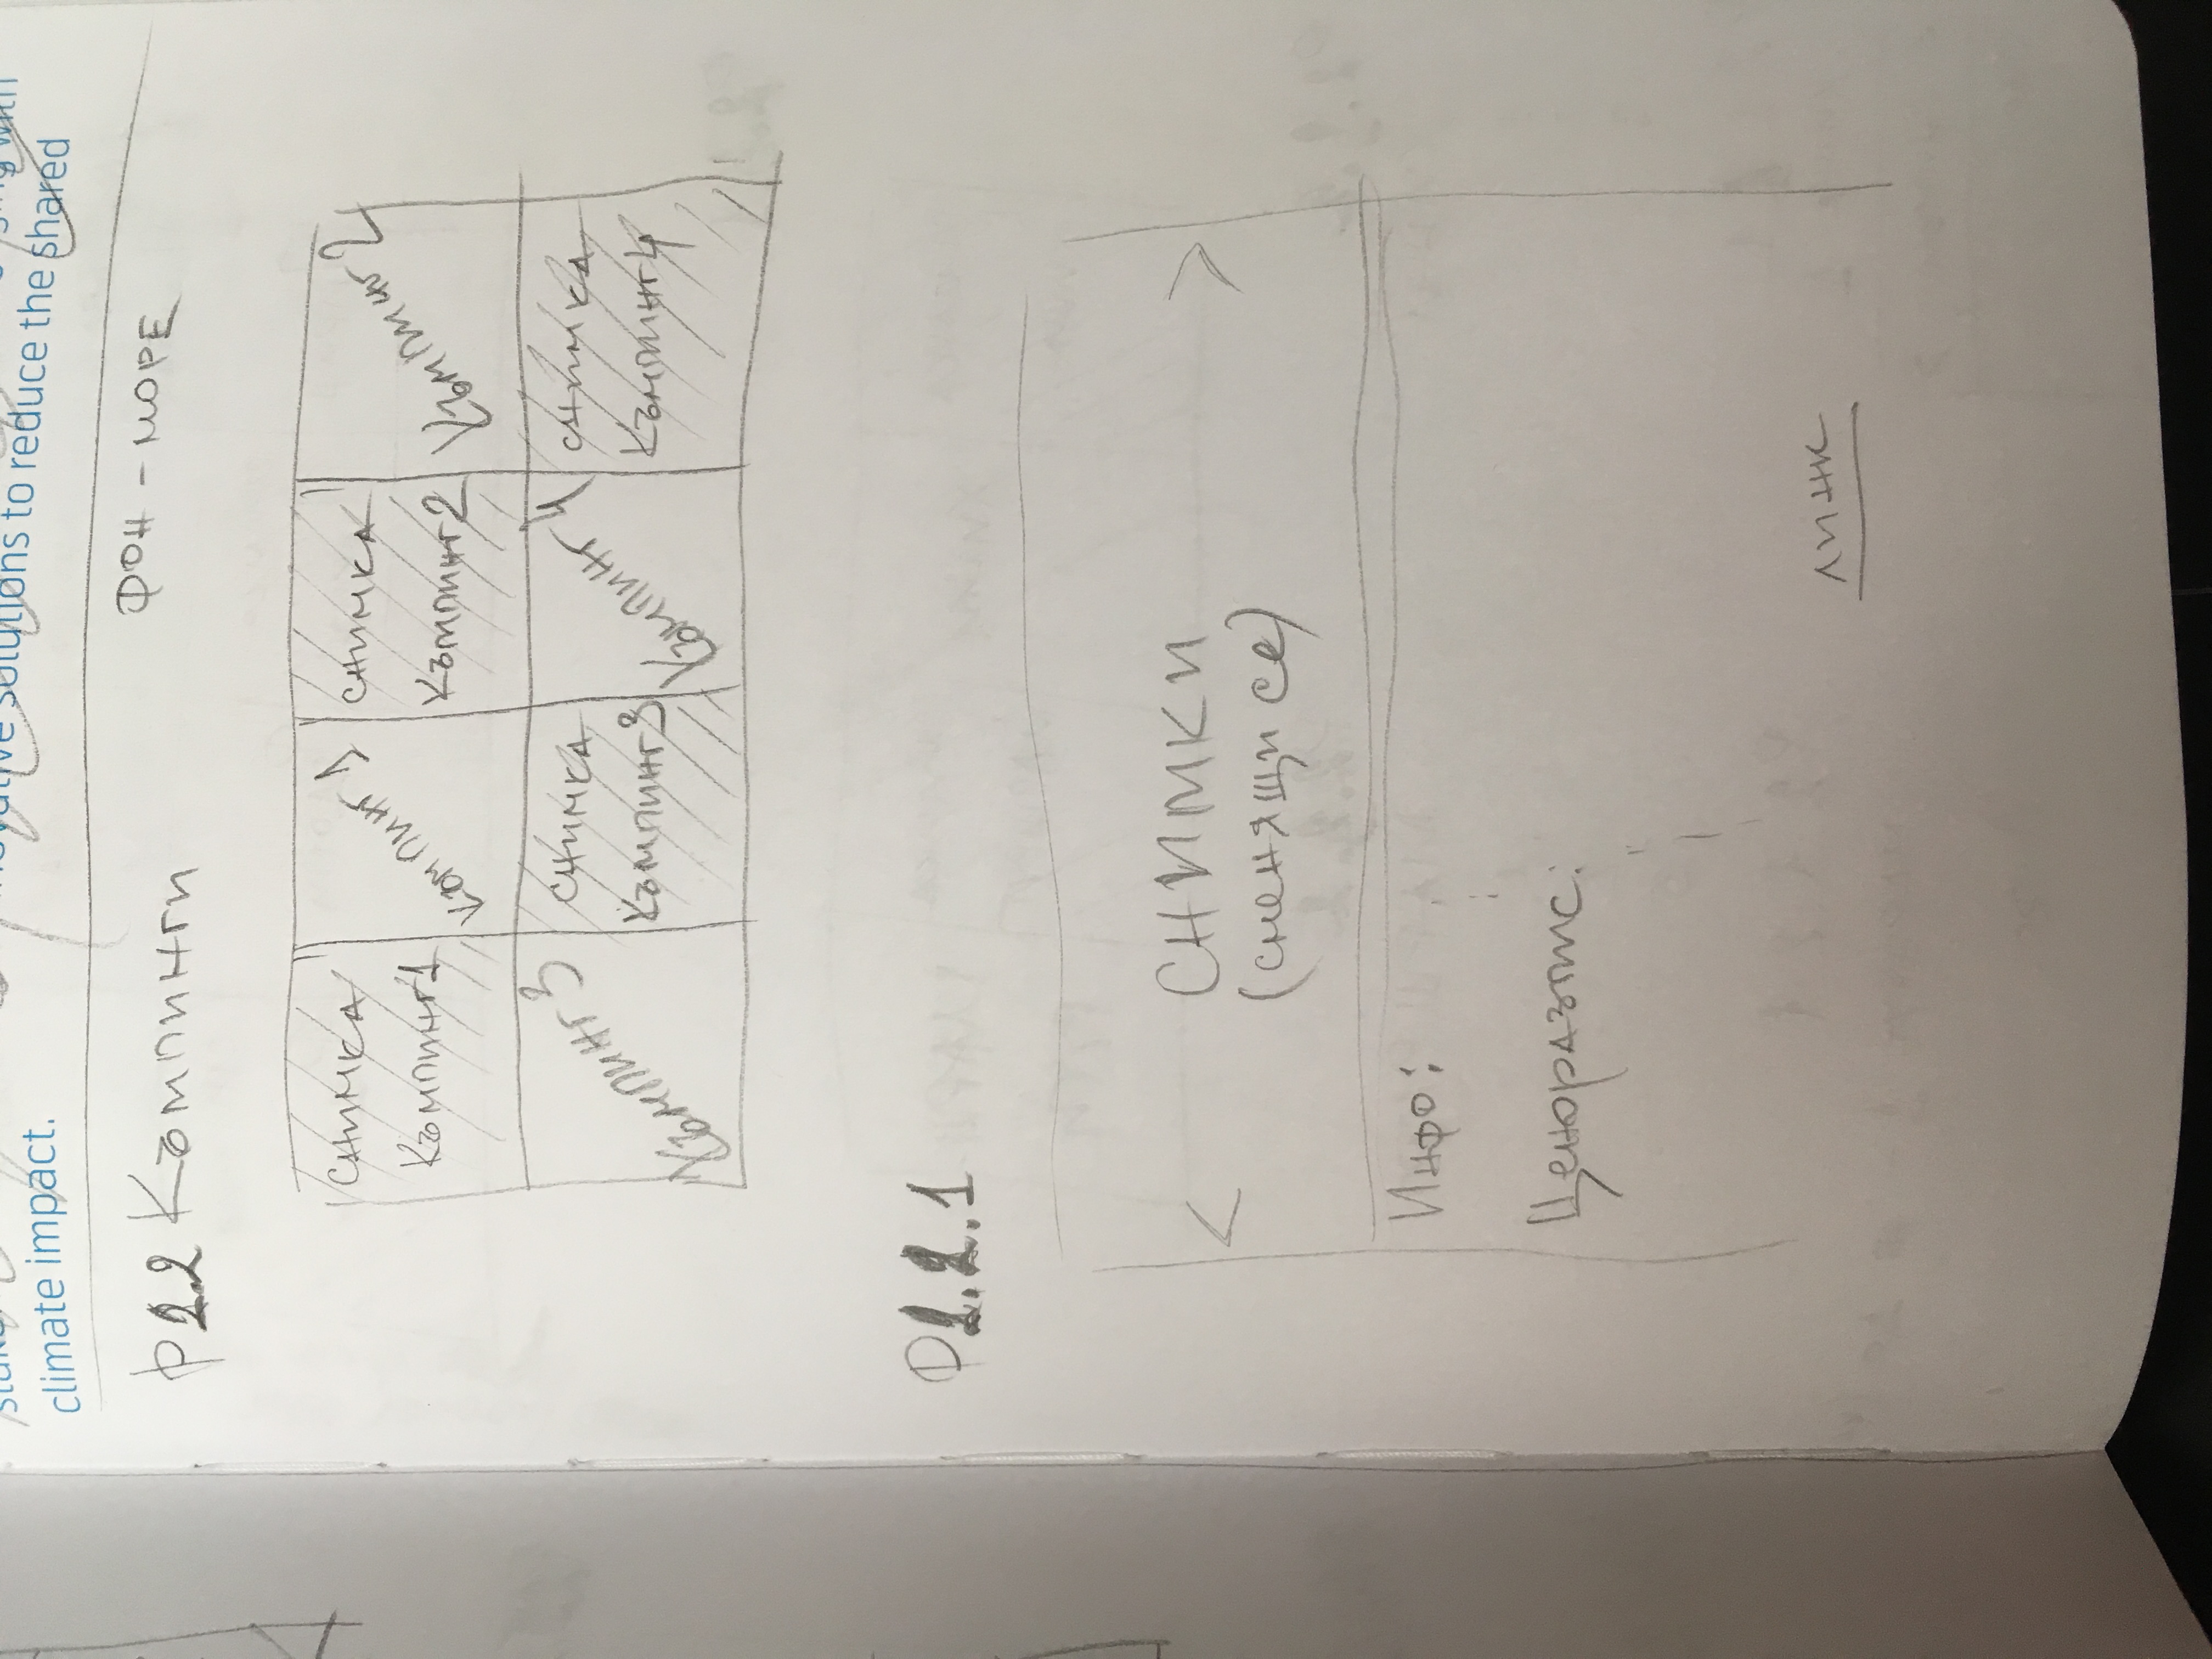 novative solutions to reduce the shared
climate impact.
P2.2 Къмпинги
ФОН - МОРЕ
СНИМКА
Къмпинг1
Къмпинг 1
СНИМКА
Къмпинг2
Къмпинг 2
Къмпинг 3
СНИМКА
Къмпинг3
Къмпинг 4
СНИМКА
Къмпинг4
P2.2.1
< СНИМКИ >
(сменящи се)
Инфо:
Ценоразпис:
линк